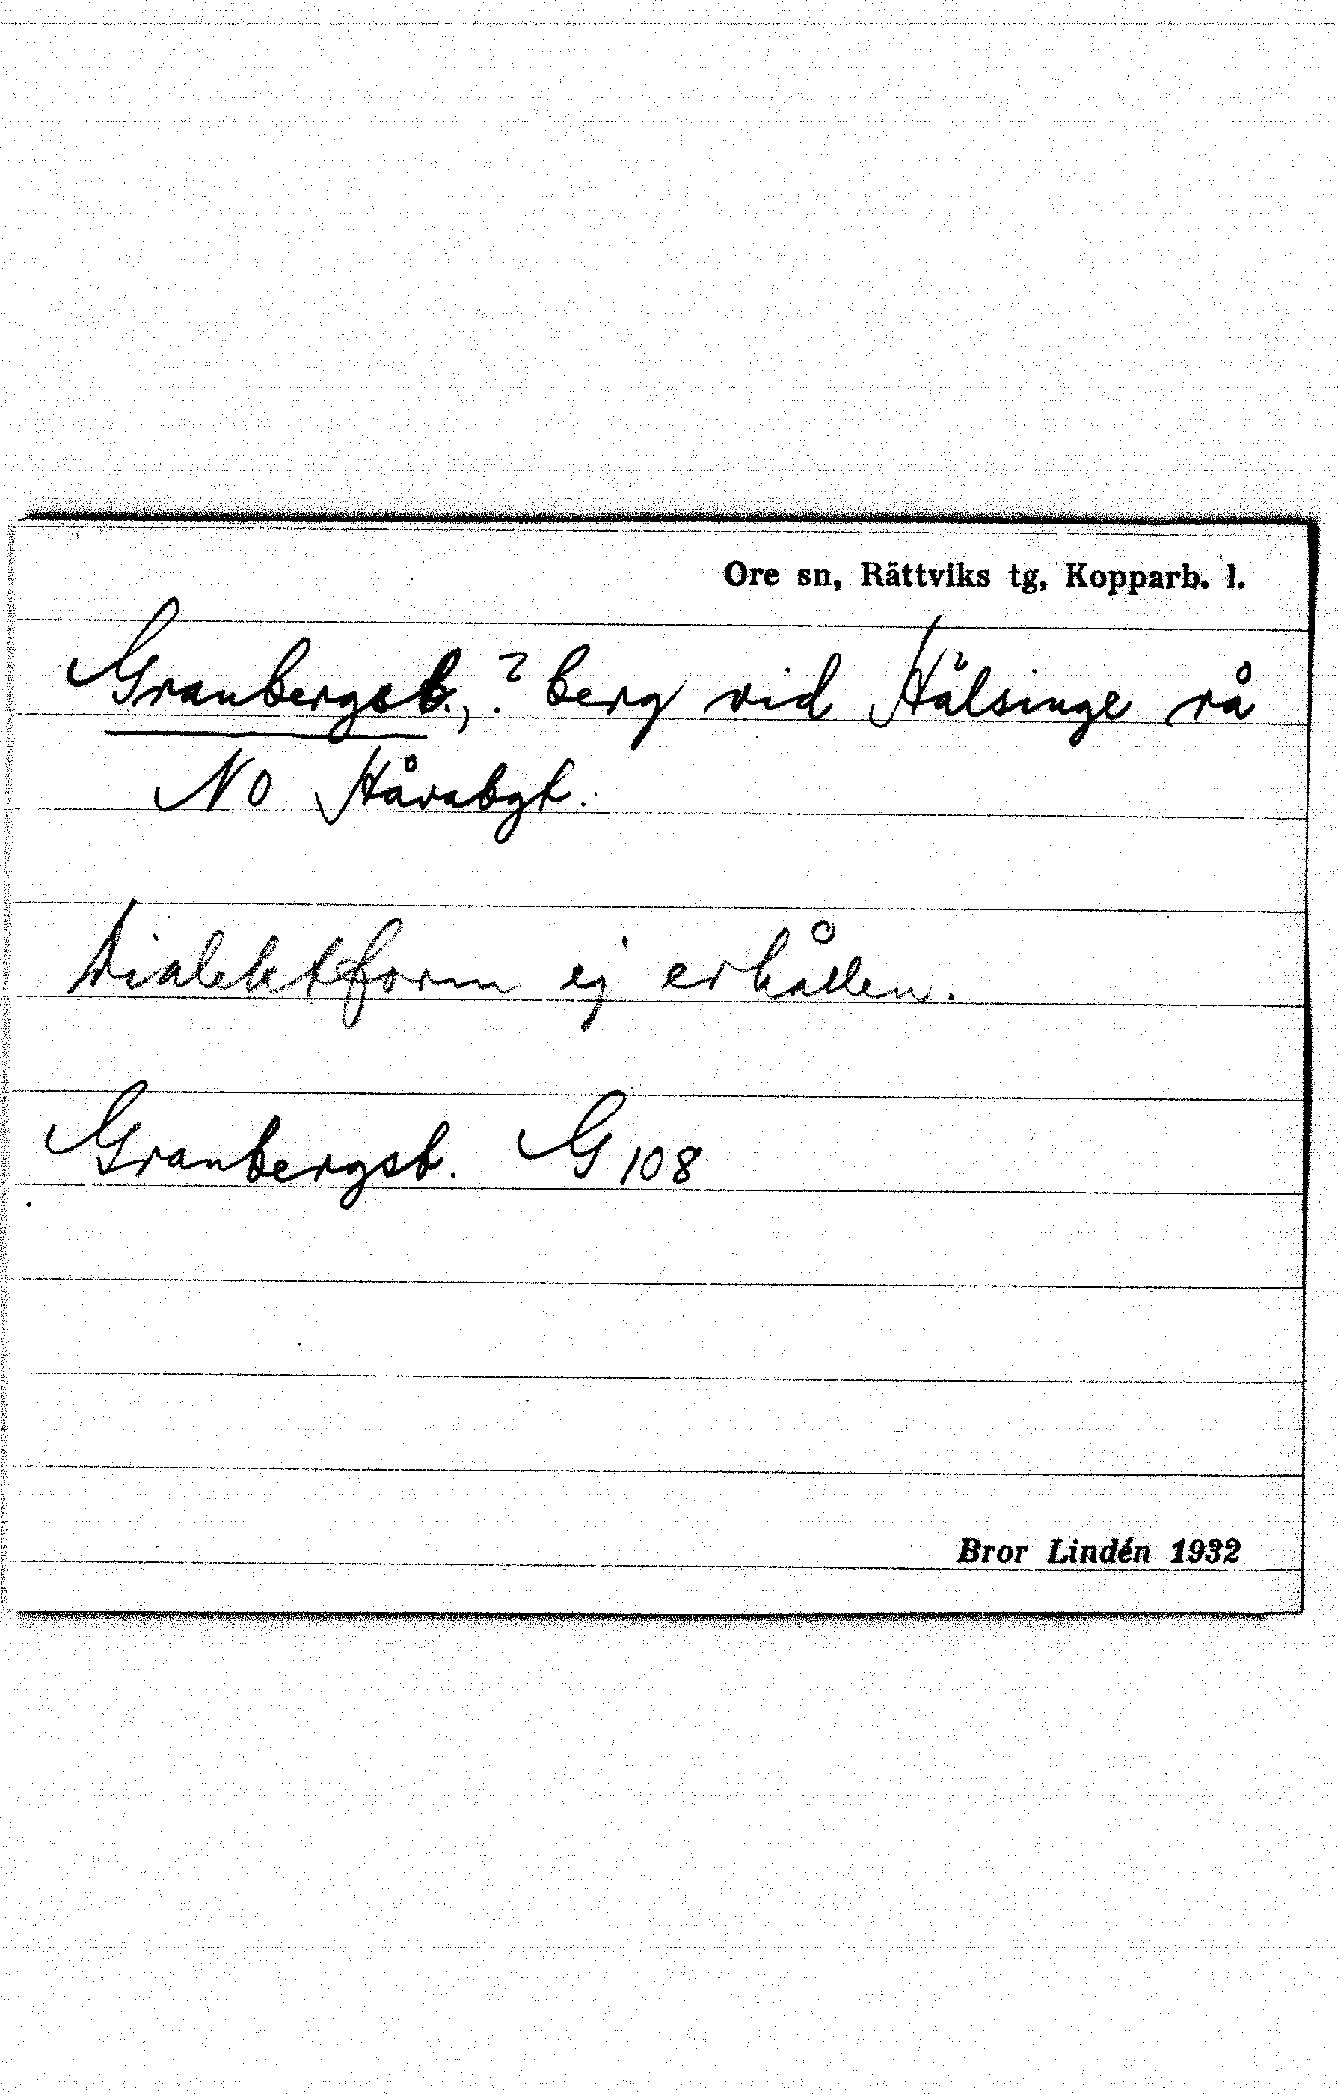 Ore sn, Rättviks tg, Kopparb. l.
Granbergsb., ? berg vid Hälsinge rå
NO Håvabgt.
Dialektform ej erhållen.
Granbergsb. G 108
Bror Lindén 1932